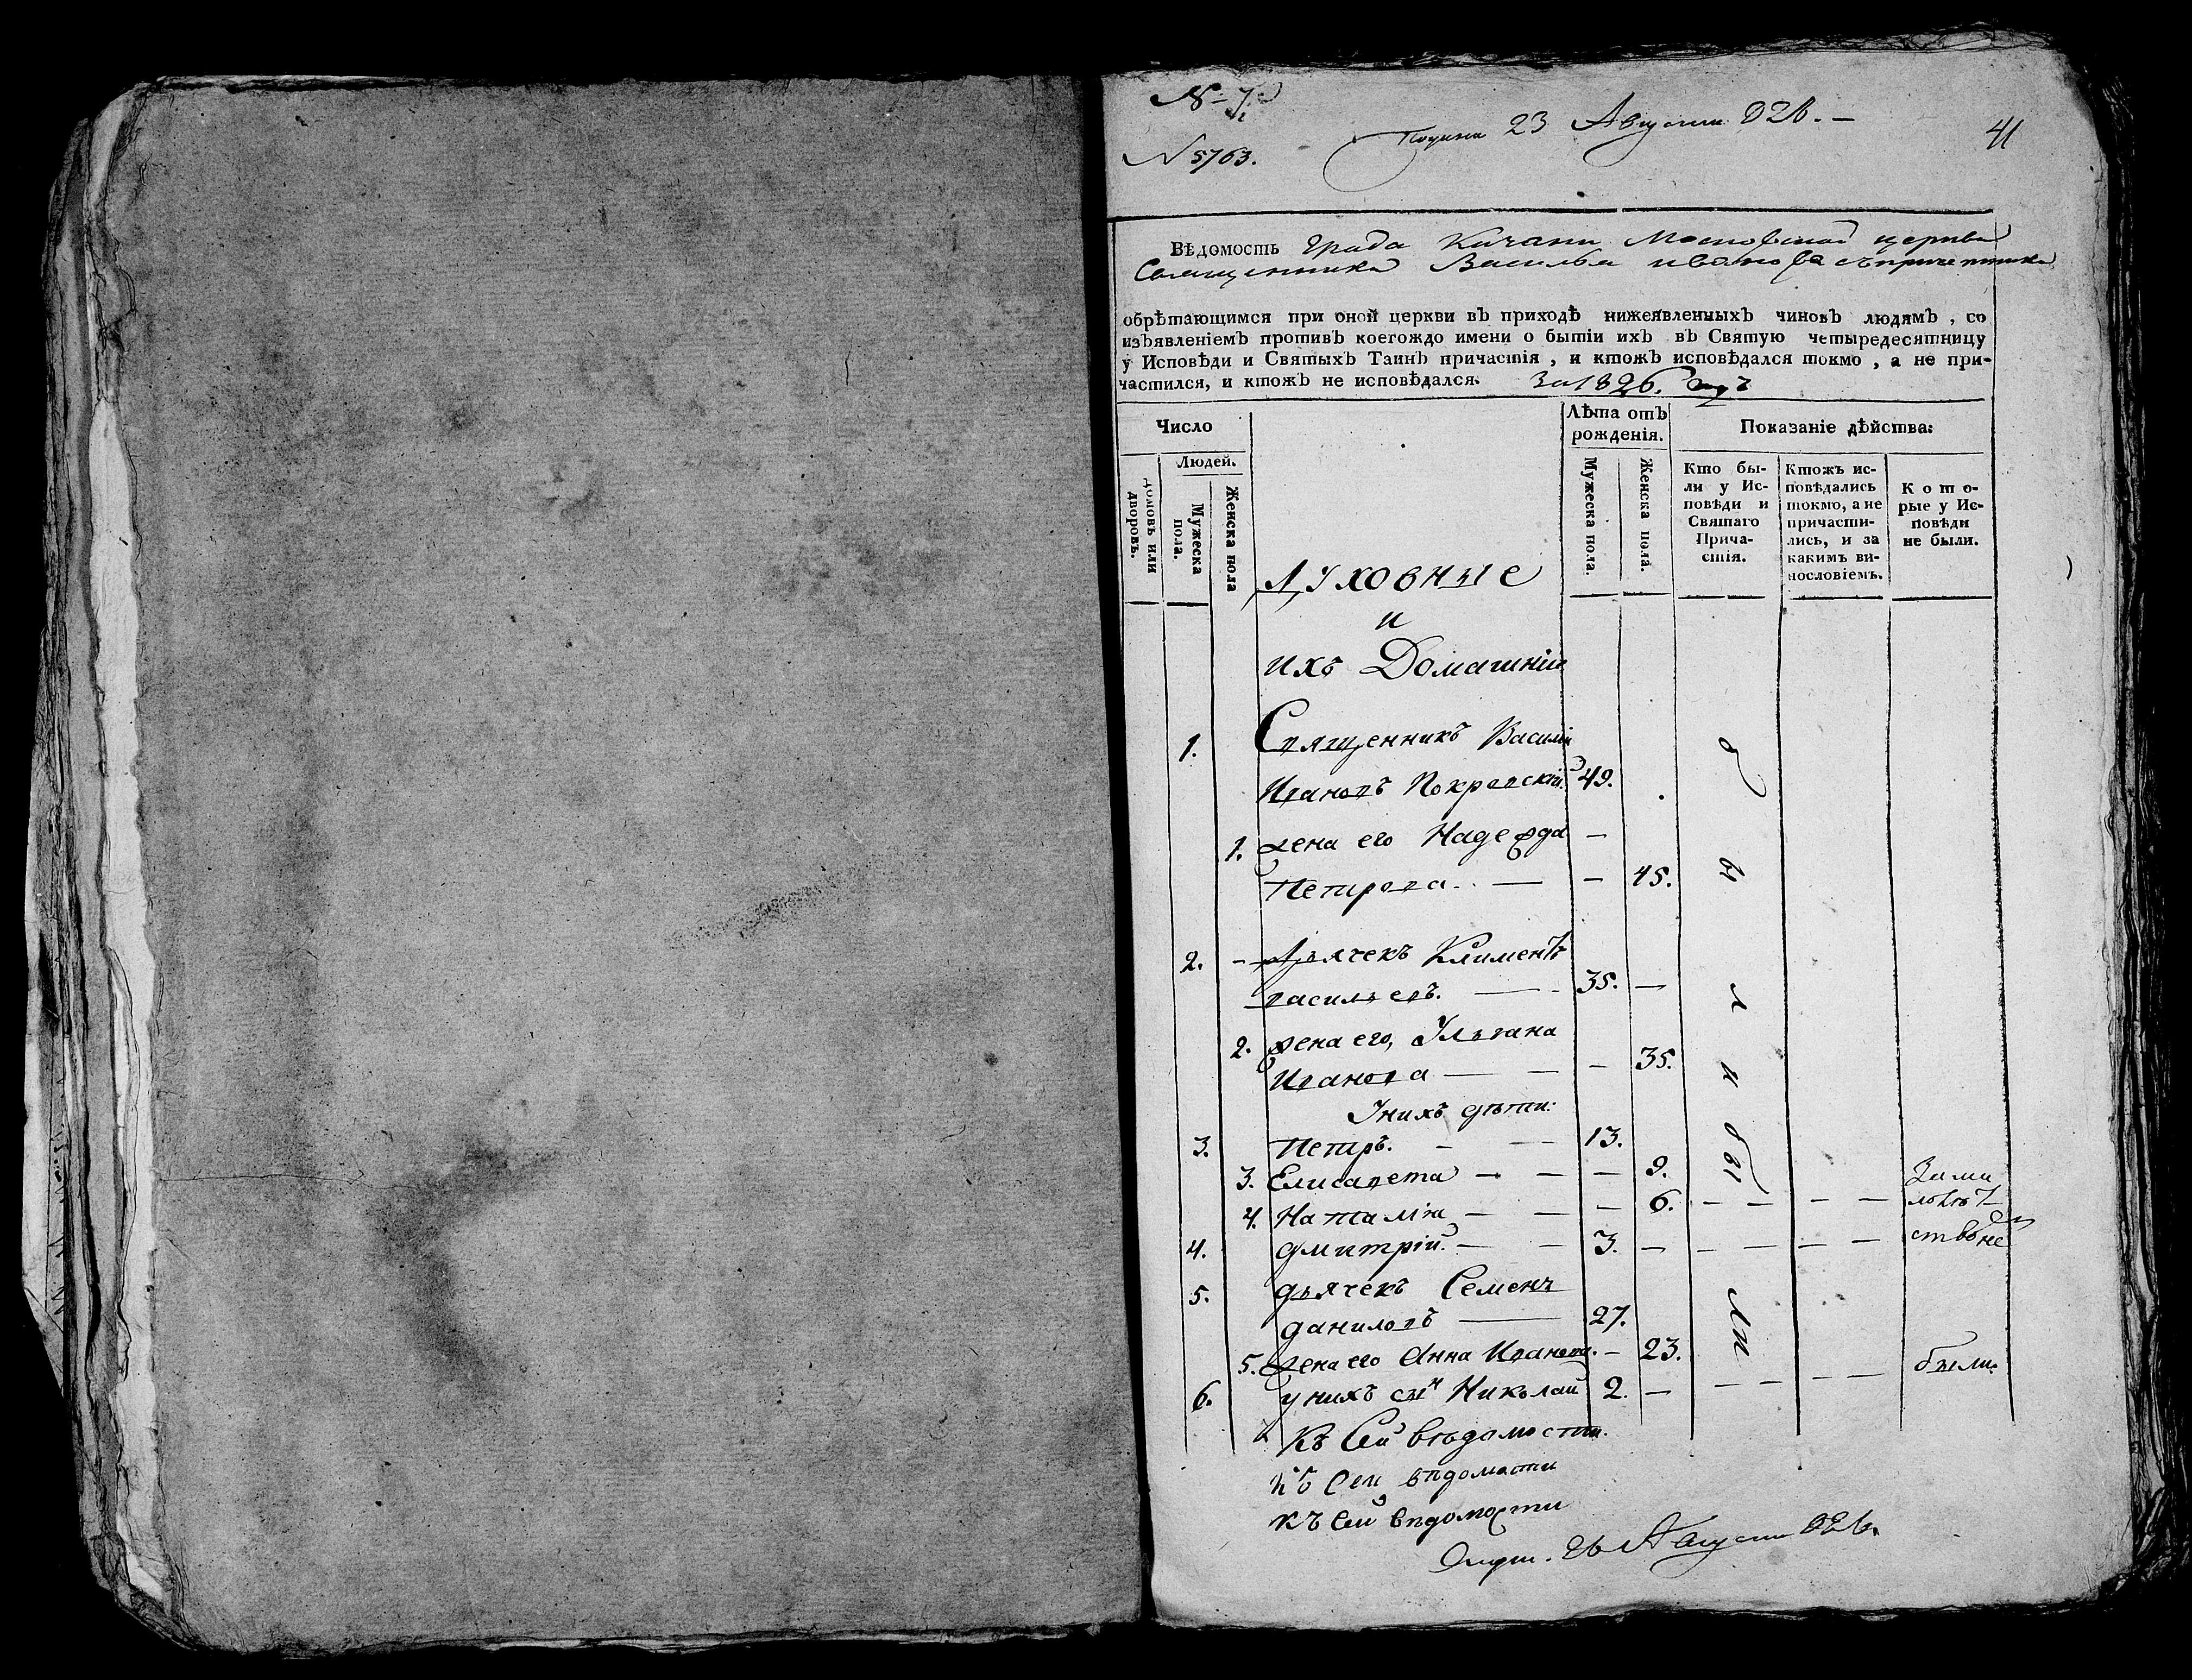 № 7
Получ. 23 Августа 826. —
41
№ 5763.
Вѣдомость града Казани Московской церкви
Священника Василья иванова съпричетники
обрѣтающимся при оной церкви въ приходѣ нижеявленныхъ чиновъ людямъ, со
изъявленіемъ противъ коегождо имени о бытіи ихъ въ Святую четыредесятницу
у Исповѣди и Святыхъ Таинъ причастія, и ктожъ исповѣдался токмо, а не при-
частился, и ктожъ не исповѣдался. За 1826. годъ
Число
Людей.
домовъ или дворовъ.
Мужеска пола.
Женска пола
Лѣта отъ
рожденія.
Мужеска пола.
Женска пола.
Показаніе дѣйства:
Кто бы-
ли у Ис-
повѣди и
Святаго
Прича-
стія.
Ктожъ ис-
повѣдались
токмо, а не
причасти-
лись, и за
какимъ ви-
нословіемъ.
Кото-
рые у Ис-
повѣди
не были.
Духовные
и
ихъ Домашніи
1. Священникъ Василій
Ивановъ Покровскій. 49.
1. жена его Надежда —
Петрова. — — 45.
2. — Дьячекъ Климентъ
васильевъ. — 35. —
2. жена его, Ульяна
Иванова — — — 35.
Унихъ дѣти:
3. Петръ. — — 13.
3. Елисавета — — — 9.
4. Наталія — — — 6. — — — —
4. дмитрій. — — 3. — — — — —
5. дьячекъ Семенъ
даниловъ — 27.
5. жена его Анна Иванова. — 23.
6. унихъ сынъ Николай 2. — — — — —
были
были
Зама
лолѣт
ствомъ не
были.
Къ Сей вѣдомости.
къ Сей вѣдомости
къ Сей вѣдомости
26 Августа 826.